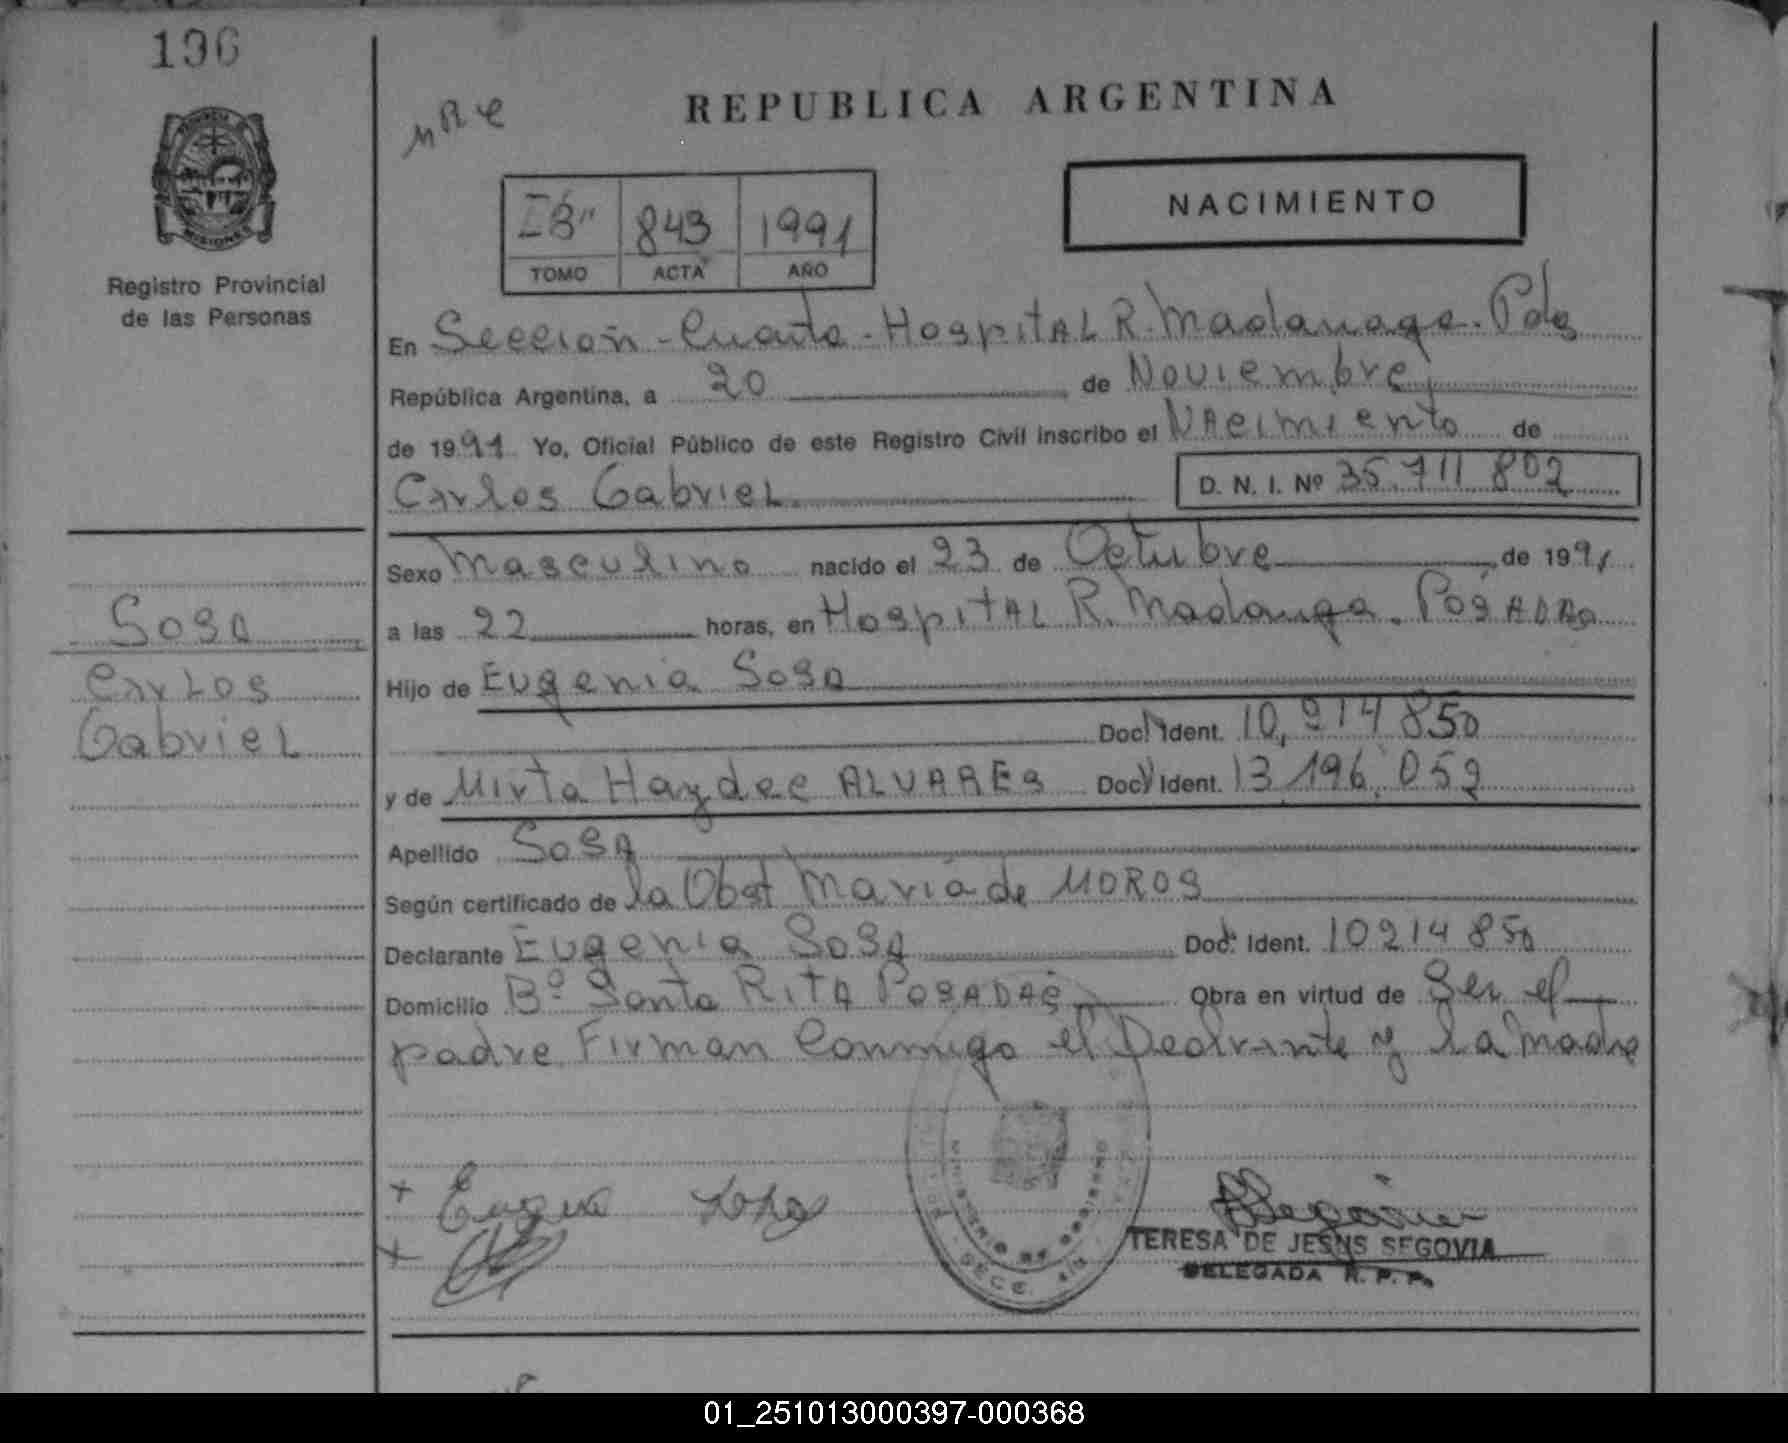 196
REPUBLICA ARGENTINA
NACIMIENTO
843 1991
TOMO ACTA AÑO
PROVINCIA
MISIONES
Registro Provincial
de las Personas
En Seccion - Cuarta - Hospital R. Madariaga. Pdas
República Argentina, a 20 de Noviembre
de 1991 Yo, Oficial Público de este Registro Civil inscribo el Nacimiento de
Carlos Gabriel. D. N. I. Nº 35.711 802
Sexo Masculino nacido el 23 de Octubre de 1991
a las 22 horas, en Hospital R. Madariaga. POSADAS
Hijo de Eugenia Sosa
Doc. Ident. 10,214 850
y de Mirta Haydee ALVARES Doc. Ident. 13 196.052
Apellido SOSA
Según certificado de la Obst Maria de MOROS
Declarante Eugenia SOSA Doc. Ident. 10214 850
Domicilio Bº Santa RITA POSADAS Obra en virtud de Ser el
padre Firman Conmigo el Declrante y la Madre
Sosa
Carlos
Gabriel
MINISTERIO DE GOBIERNO
TERESA DE JESUS SEGOVIA
DELEGADA R. P. P.
01_251013000397-000368